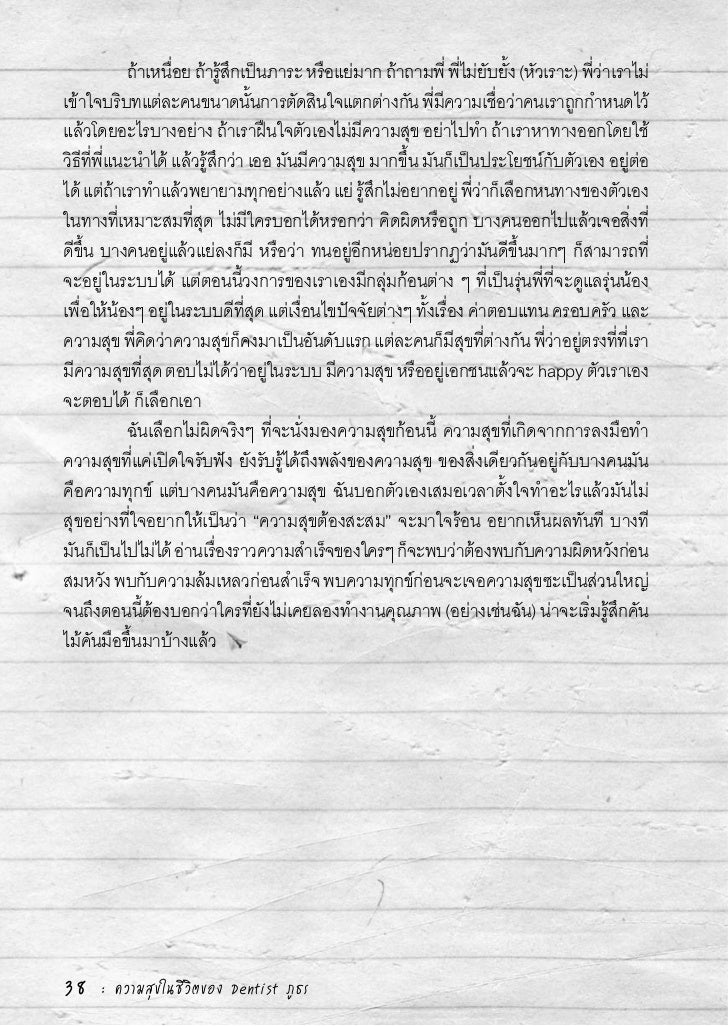 ถ้าเหนื่อย ถ้ารู้สึกเป็นภาระ หรือแย่มาก ถ้าถามพี่ พี่ไม่ยับยั้ง (หัวเราะ) พี่ว่าเราไม่
เข้าใจบริบทแต่ละคนขนาดนั้นการตัดสินใจแตกต่างกัน พี่มีความเชื่อว่าคนเราถูกกำหนดไว้
แล้วโดยอะไรบางอย่าง ถ้าเราฝืนใจตัวเองไม่มีความสุข อย่าไปทำ ถ้าเราหาทางออกโดยใช้
วิธีที่พี่แนะนำได้ แล้วรู้สึกว่า เออ มันมีความสุข มากขึ้น มันก็เป็นประโยชน์กับตัวเอง อยู่ต่อ
ได้ แต่ถ้าเราทำแล้วพยายามทุกอย่างแล้ว แย่ รู้สึกไม่อยากอยู่ พี่ว่าก็เลือกหนทางของตัวเอง
ในทางที่เหมาะสมที่สุด ไม่มีใครบอกได้หรอกว่า คิดผิดหรือถูก บางคนออกไปแล้วเจอสิ่งที่
ดีขึ้น บางคนอยู่แล้วแย่ลงก็มี หรือว่า ทนอยู่อีกหน่อยปรากฏว่ามันดีขึ้นมากๆ ก็สามารถที่
จะอยู่ในระบบได้ แต่ตอนนี้วงการของเราเองมีกลุ่มก้อนต่าง ๆ ที่เป็นรุ่นพี่ที่จะดูแลรุ่นน้อง
เพื่อให้น้องๆ อยู่ในระบบดีที่สุด แต่เงื่อนไขปัจจัยต่างๆ ทั้งเรื่อง ค่าตอบแทน ครอบครัว และ
ความสุข พี่คิดว่าความสุขก็คงมาเป็นอันดับแรก แต่ละคนก็มีสุขที่ต่างกัน พี่ว่าอยู่ตรงที่ที่เรา
มีความสุขที่สุด ตอบไม่ได้ว่าอยู่ในระบบ มีความสุข หรืออยู่เอกชนแล้วจะ happy ตัวเราเอง
จะตอบได้ ก็เลือกเอา
ฉันเลือกไม่ผิดจริงๆ ที่จะนั่งมองความสุขก้อนนี้ ความสุขที่เกิดจากการลงมือทำ
ความสุขที่แค่เปิดใจรับฟัง ยังรับรู้ได้ถึงพลังของความสุข ของสิ่งเดียวกันอยู่กับบางคนมัน
คือความทุกข์ แต่บางคนมันคือความสุข ฉันบอกตัวเองเสมอเวลาตั้งใจทำอะไรแล้วมันไม่
สุขอย่างที่ใจอยากให้เป็นว่า “ความสุขต้องสะสม” จะมาใจร้อน อยากเห็นผลทันที บางที
มันก็เป็นไปไม่ได้ อ่านเรื่องราวความสำเร็จของใครๆ ก็จะพบว่าต้องพบกับความผิดหวังก่อน
สมหวัง พบกับความล้มเหลวก่อนสำเร็จ พบความทุกข์ก่อนจะเจอความสุขซะเป็นส่วนใหญ่
จนถึงตอนนี้ต้องบอกว่าใครที่ยังไม่เคยลองทำงานคุณภาพ (อย่างเช่นฉัน) น่าจะเริ่มรู้สึกคัน
ไม้คันมือขึ้นมาบ้างแล้ว
38 : ความสุขในชีวิตของ Dentist ภูธร